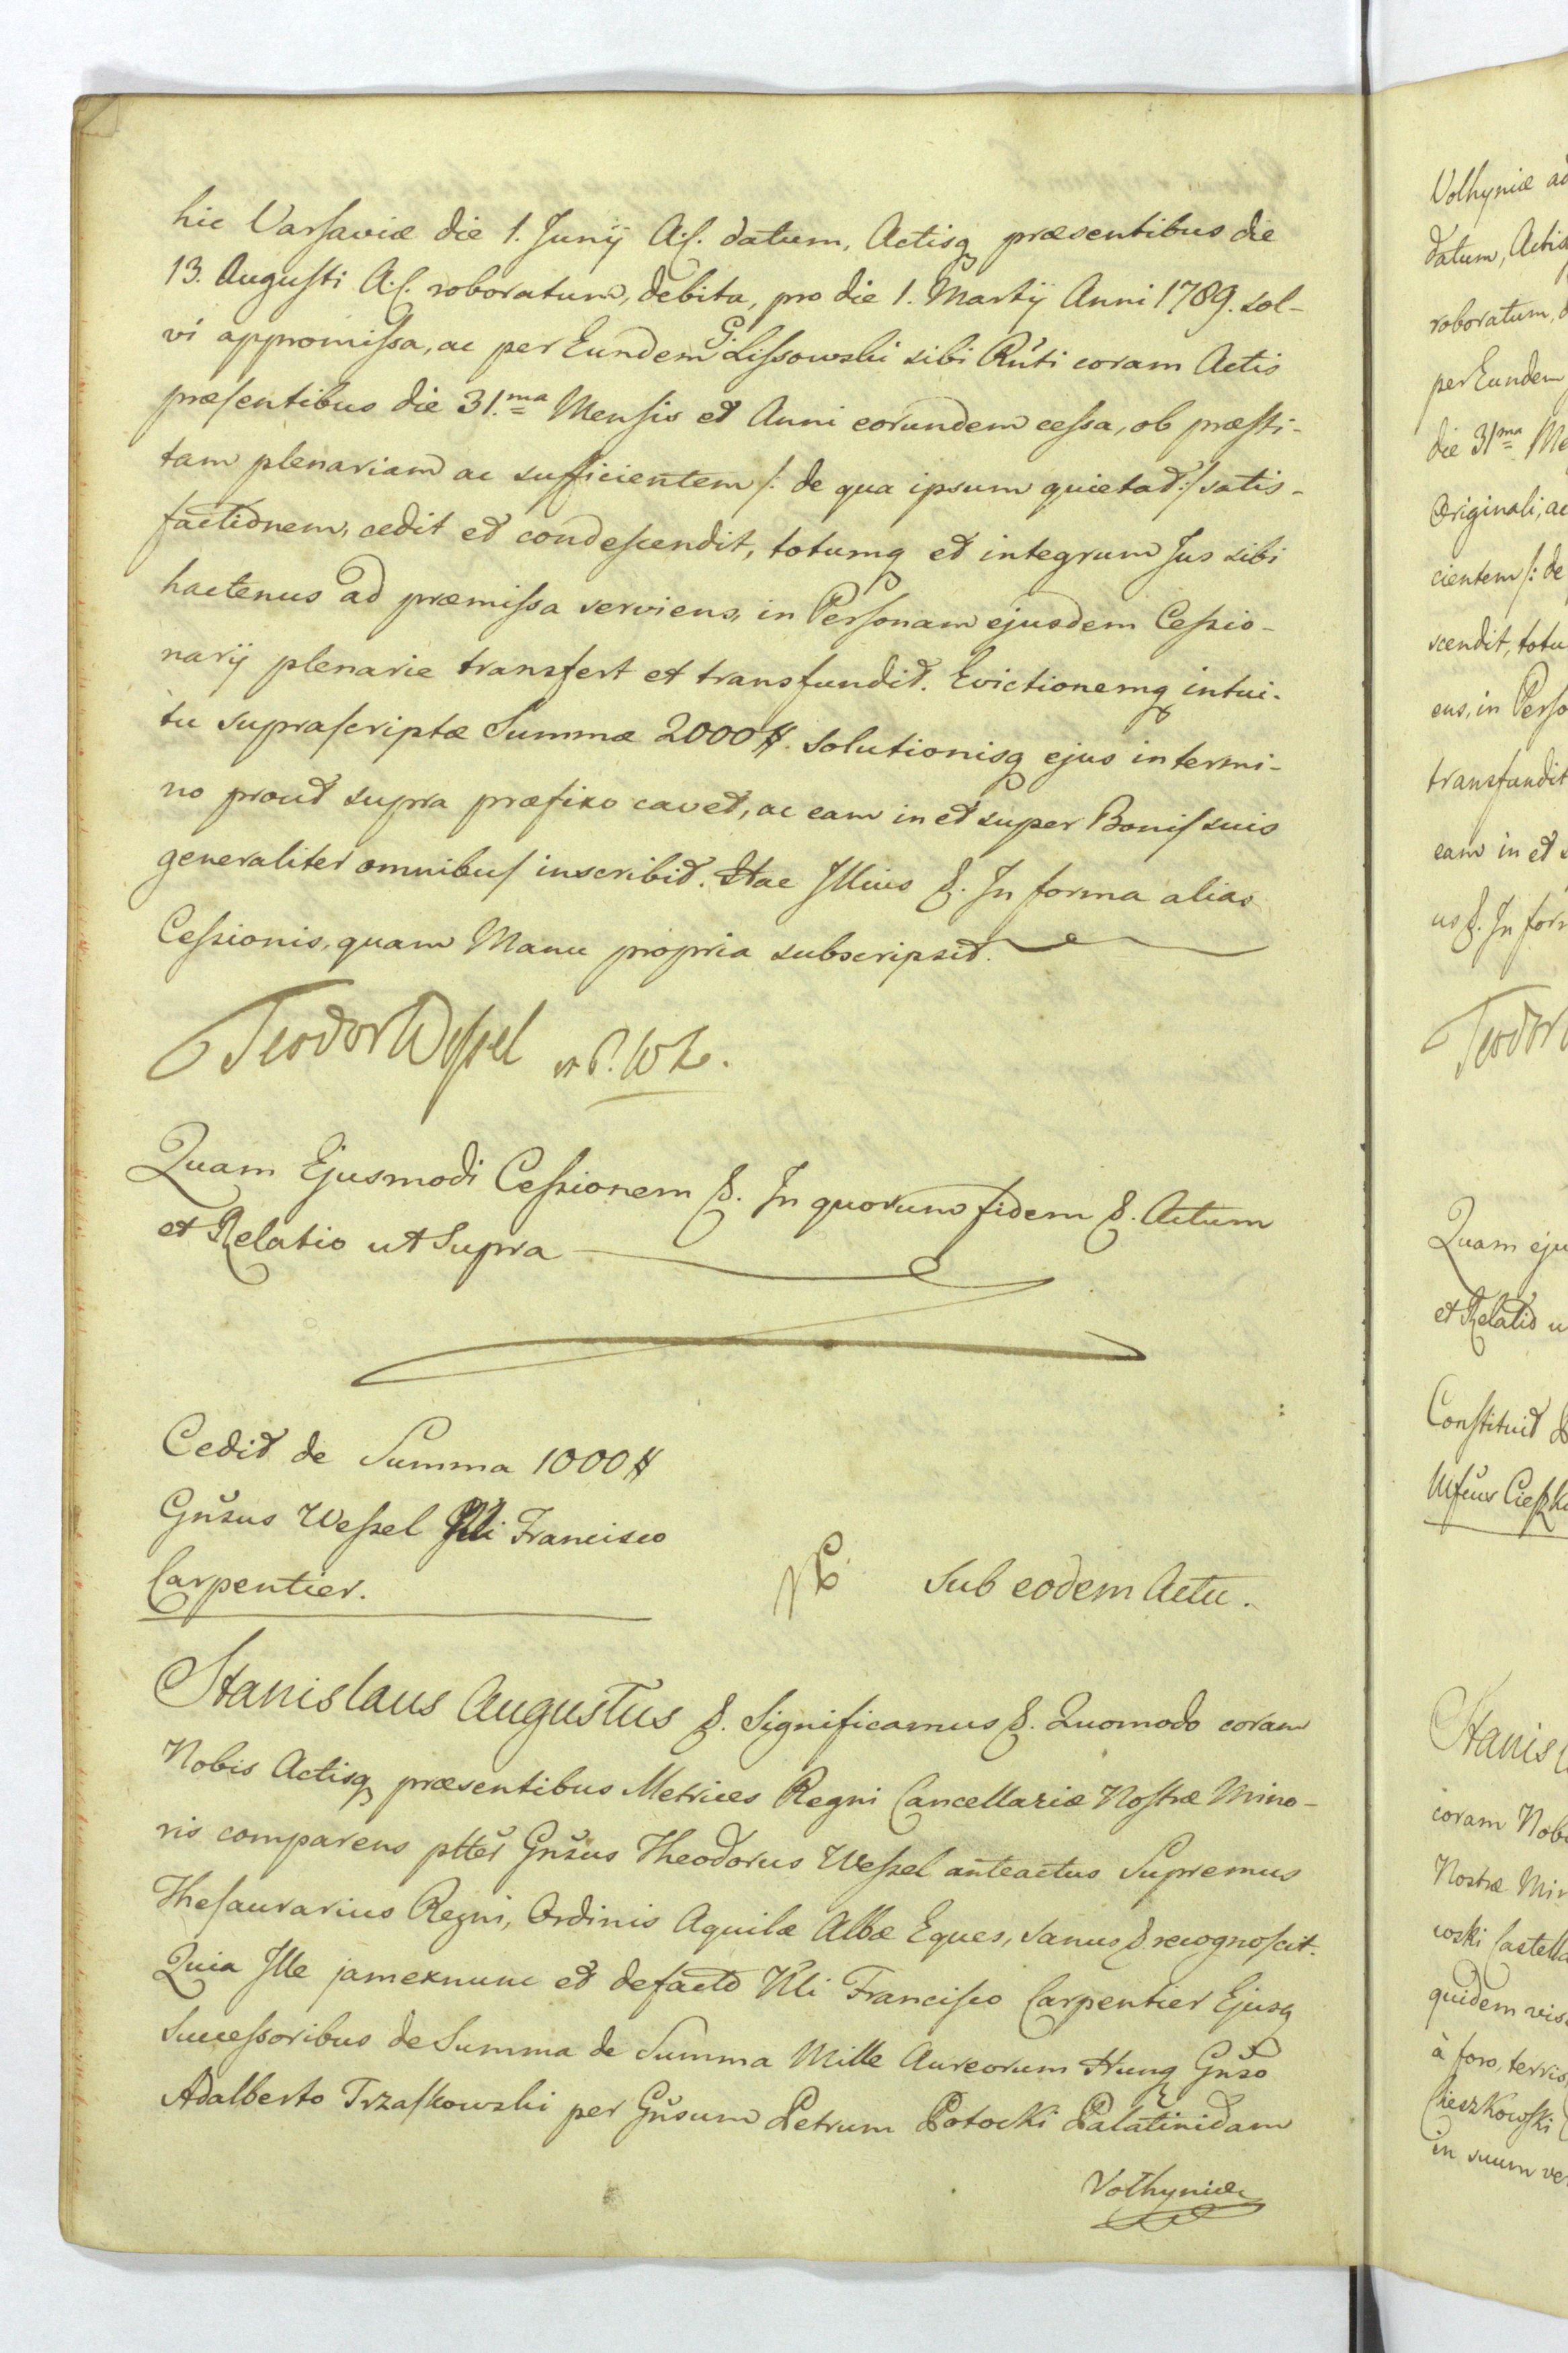 hic Varsaviæ die 1. Junij A:C. datum, Actisq præsentibus die
13. Augusti A:C. roboratum, debita, pro die 1. Martij Anni 1789. sol-
vi appromissa, ac per Eundem G. Lissowski sibi Rnti coram Actis
præsentibus die 31.ma Mensis et Anni eorundem cessa, ob præsti-
tam plenariam ac sufficientem /: de qua ipsum quietat :/ satis-
factionem, cedit et condescendit, totumq et integrum Jus sibi
hactenus ad præmissa serviens, in Personam ejusdem Cessio-
narij plenarie transfert et transfundit. Evictionemq intui-
tu suprascriptæ Summæ 2000 #. solutionisq ejus in termi-
no prout supra præfixo cavet, ac eam in et super Bonis suis
generaliter omnibus inscribit. Hac Illius &. In forma alias
Cessionis, quam Manu propria subscripsit.
Teodor Wessel
Quam Ejusmodi Cessionem &. In quorum fidem &. Actum
et Relatio ut Supra
Cedit de Summa 1000 #
Gnsus Wessel Nli Francisco
Carpentier.
Sub eodem Actu.
Stanislaus Augustus &. Significamus &. Quomodo coram
Nobis Actisq præsentibus Metrices Regni Cancellariæ Nostræ Mino-
ris comparens pltter Gnsus Theodorus Wessel anteactus Supremus
Thesaurarius Regni, Ordinis Aquilæ Albæ Eques, sanus & recognoscit.
Quia Ille jamexnunc et defacto Nli Francisco Carpentier Ejusq
Successoribus de Summa de Summa Mille Aureorum Hung Gnso
Adalberto Trzaskowski per Gnsum Petrum Potocki Palatinidam
Volhyniæ
Volhyniæ
datum,
roboratum,
per Eundem
die 31ma
Originali,
cientem /: de
scendit,
ens, in
transfundit
eam in et
us &. In
Teodor
Quam
et Relatio
Constituit
Stanis
coram
Nostræ
quidem
à foro, terris,
Cieszkowski
in suum